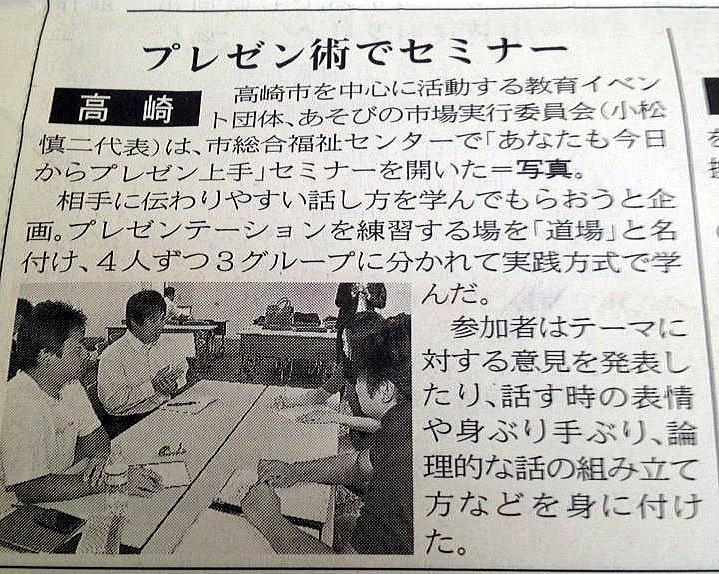 プレゼン術でセミナー
高崎
高崎市を中心に活動する教育イベン
ト団体、あそびの市場実行委員会(小松
慎二代表)は、市総合福祉センターで「あなたも今日
からプレゼン上手」セミナーを開いた=写真。
相手に伝わりやすい話し方を学んでもらおうと企
画。プレゼンテーションを練習する場を「道場」と名
付け、4人ずつ3グループに分かれて実践方式で学
んだ。
参加者はテーマに
対する意見を発表し
たり、話す時の表情
や身ぶり手ぶり、論
理的な話の組み立て
方などを身に付け
た。